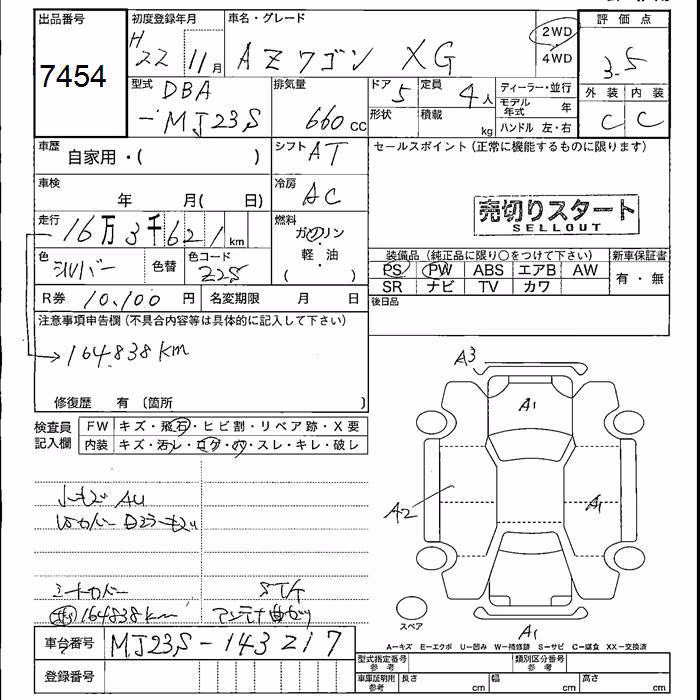 出品番号 初度登録年月 車名・グレード 評価点
7454 H22 11月 AZワゴン XG 2WD 4WD 3.5
型式 DBA-MJ23S 排気量 660cc ドア 5 定員 4人 ディーラー・並行 外装 内装
形状 積載 kg モデル年式 年 C C
ハンドル 左・右
車歴 自家用・( ) シフト AT セールスポイント(正常に機能するものに限ります)
車検 年 月( 日) 冷房 AC
売切りスタート
SELLOUT
走行 16万3千621km 燃料 ガソリン・軽・油 ( )
色 シルバー 色替 色コード Z2S
装備品(純正品に限り〇をつけて下さい) 新車保証書
PS PW ABS エアB AW 有・無
SR ナビ TV カワ
R券 10,100円 名変期限 月 日 後日品
注意事項申告欄(不具合内容等は具体的に記入して下さい)
→164.838km
修復歴 有 (箇所 )
検査員記入欄 FW キズ・飛石・ヒビ割・リペア跡・X要
内装 キズ・汚レ・コゲ・穴・スレ・キレ・破レ
A3
A1
A2
A1
A1
スペア
164838km
A―キズ E―エクボ U―凹み W―補修跡 S―サビ C―腐食 XX―交換済
車台番号 MJ23S-143217
型式指定番号 参考 類別区分番号 参考
登録番号 車庫証明用 参考 長さ cm 幅 cm 高さ cm